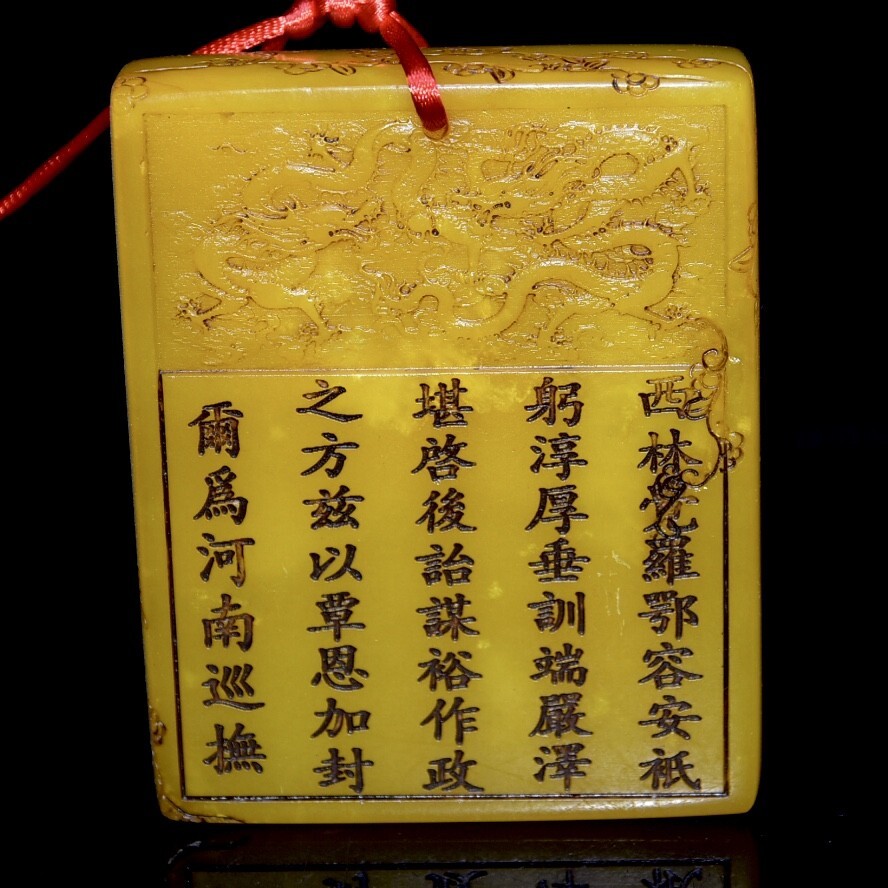 西林覺羅鄂容安祗
躬淳厚垂訓端嚴澤
堪啓後詒謀裕作政
之方兹以覃恩加封
爾爲河南巡撫